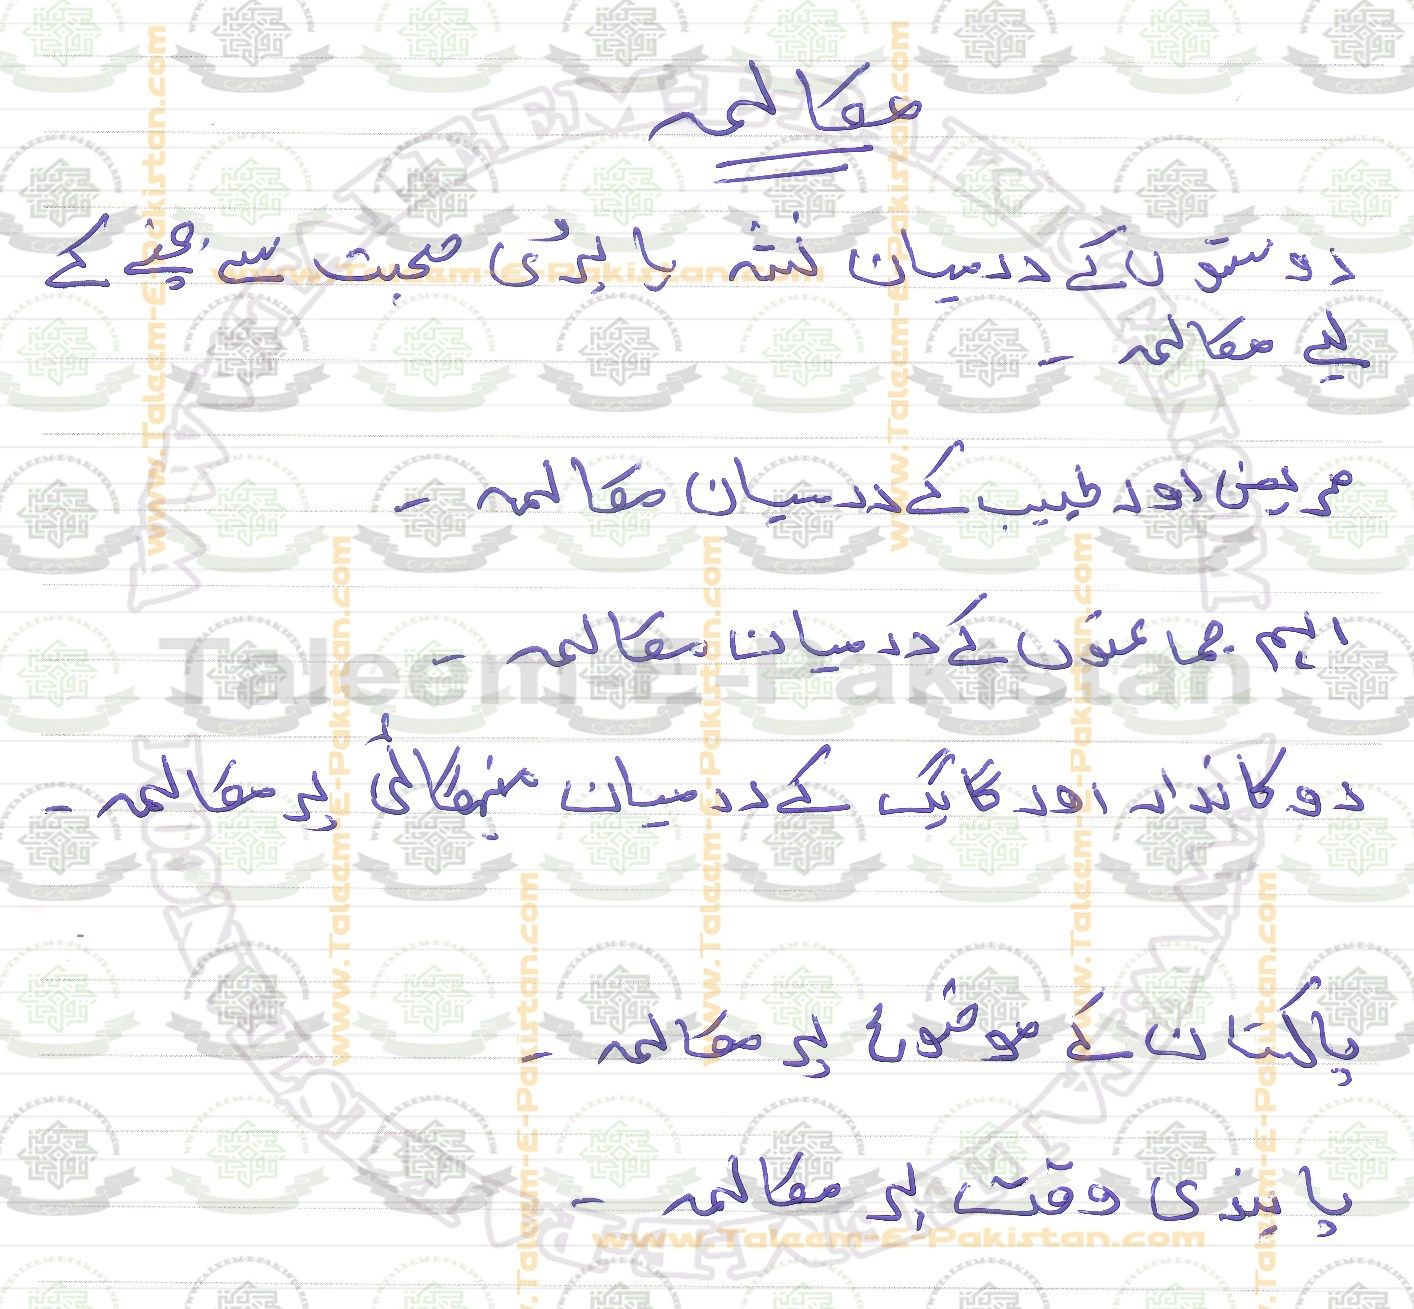 مکالمہ
دوستوں کے درمیان نشہ یا بری صحبت سے بچنے کے
لیے مکالمہ ۔
مریض اور طبیب کے درمیان مکالمہ ۔
اہم جماعتوں کے درمیان مکالمہ ۔
دوکاندار اور گاہک کے درمیان مہنگائی پر مکالمہ ۔
پاکستان کے موضوع پر مکالمہ ۔
پابندی وقت پر مکالمہ ۔
Taleem-E-Pakistan
www.Taleem-E-Pakistan.com